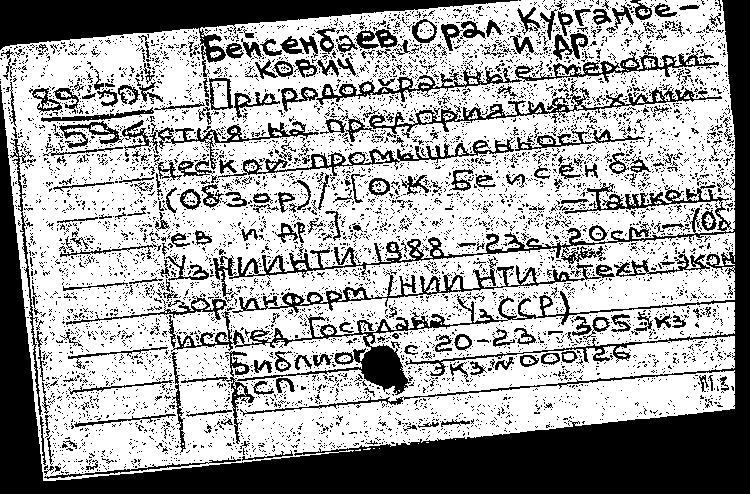 Бейсенбаев, Орал Курганбе-
кович и др.
89-50к
Природоохранные меропри-
53с
ятия на предприятиях хими-
ческой промышленности
(Обзор) / [О.К. Бейсенба
ев и др.].
—Ташкент
УзНИИНТИ, 1988.-23с., 20см.-(Об
зор. информ / НИИ НТИ и техн.-экон
исслед. Госплана УзССР)
Библиогр.: с. 20-23.-305 экз.
ДСП. экз. № 000126